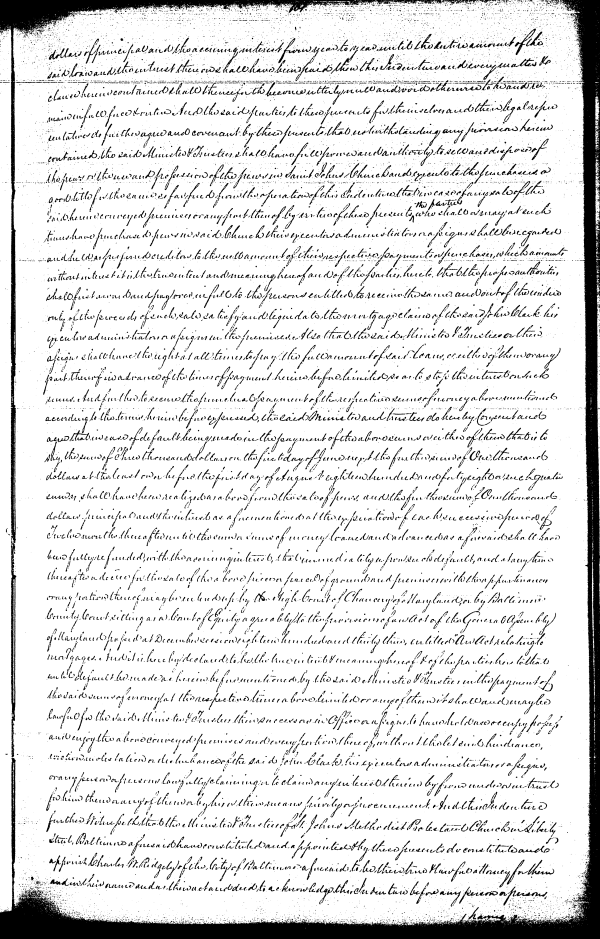 dollars of principal and the accruing interest from year to year until the entire amount of the
said loan and the interest thereon shall have been paid then this Indenture and every matter &
clause herein contained shall thenceforth become utterly null and void otherwise to be and re
main in full force & virtue. And the said parties to these presents for themselves and their legal repre
sentatives do further agree and covenant by these presents that notwithstanding any provision herein
contained, the said Minister & Trustees shall have full power and authority to sell and dispose of
the pews or the use and possession of the pews in Saint Johns Church and execute to the purchasers a
good title for the same so far freed from the operation of this Indenture that in case of any sale of the
said herein conveyed premises or any part thereof by virtue of these presents, the parties who shall or may at such
time have purchased pews in said Church their executors administrators or assigns shall be regarded
and held as preferred creditors to the full amount of their respective payments or purchases, which amounts
without interest it is the true intent and meaning hereof and of the parties hereto, that the proper authorities
shall first award and pay over in full to the persons entitled to receive the same and out of the residue
only of the proceeds of such sale satisfy and liquidate the mortgage claim of the said John Clark his
executors administrators or assigns in the premises. Also that the said Minister & Trustees or their
assigns shall have the right at all times to pay the full amount of said loans, or either of them or any
part thereof in advance of the times of payment herein before limited so as to stop the interest on such
sums. And further to secure the punctual payment of the respective sums of money above mentioned
according to the terms herein before expressed, the said Minister and trustees do hereby Consent and
agree that in case of default being made in the payment of the above sums or either of them that is to
say, the sum of Three thousand dollars on the first day of June next the further sum of One thousand
dollars at the least on or before the first day of August eighteen hundred and forty eight or such greater
sum as shall have been realized as above from the sale of pews, and the further sum of One thousand
dollars principal and the interest as aforementioned at the expiration of each successive period of
Twelve months thereafter until the sum or sums of money loaned and advanced as aforesaid shall have
been fully refunded, with the accruing interest, that immediately upon such default, and at any time
thereafter a decree for the sale of the above piece or parcel of ground and premises with the appurtenances
or any portion thereof may be entered up by the High Court of Chancery of Maryland, or by Baltimore
County Court sitting as a Court of Equity agreeably to the provisions of an Act of the General Assembly
of Maryland passed at December session eighteen hundred and thirty three, entitled An Act relating to
mortgages. And it is hereby declared to be the true intent & meaning hereof & of the parties hereto that
until default be made as herein before mentioned by the said Minister & Trustees in the payment of
the said sums of money at the respective times above limited or any of them it shall and may be
lawful for the said Minister & Trustees their successors in Office or assigns to have hold use occupy possess
and enjoy the above conveyed premises and every portion thereof, without the let suit hindrance,
eviction molestation or disturbance of the said John Clark, his executors administrators or assigns,
or any person or persons lawfully claiming or to claim any interest therein by from under or in trust
for him them or any of them or by his or their means privity or procurement. And this Indenture
further Witnesseth that the Minister & Trustees of St. Johns Methodist Protestant Church in Liberty
Street, Baltimore aforesaid have constituted and appointed & by these presents do constitute and
appoint Charles W. Ridgely of the City of Baltimore aforesaid to be their true & lawful attorney for them
and in their name and as their act and deed to acknowledge this Indenture before any person or persons